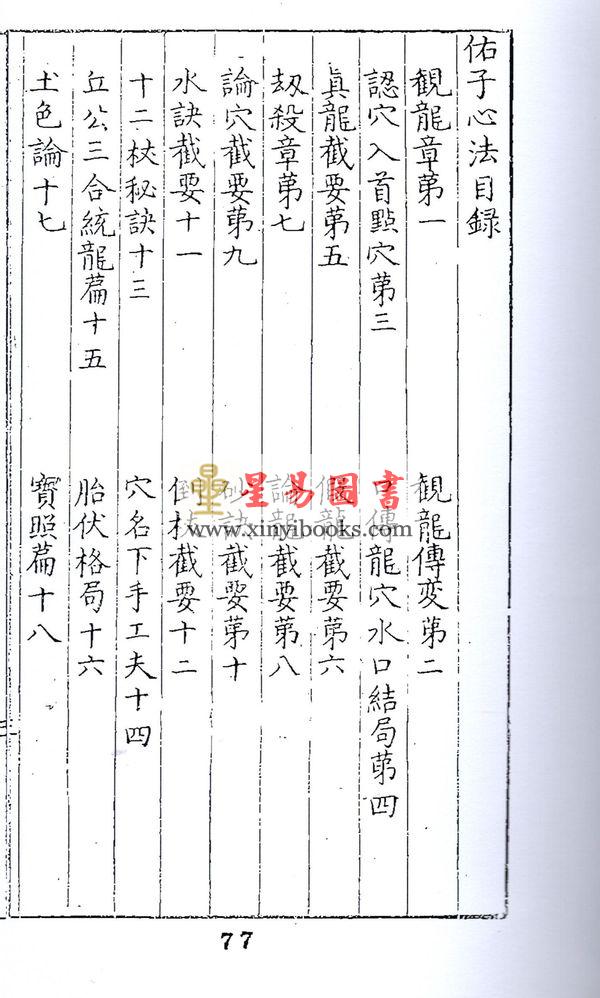 佑子心法目録
觀龍章第一
觀龍傳変第二
認穴入首點穴第三
口傳龍穴水口結局第四
眞龍截要第五
假龍截要第六
刼殺章第七
論龍截要第八
論穴截要第九
砂訣截要第十
水訣截要十一
倒杖截要十二
十二杖秘訣十三
穴名下手工夫十四
丘公三合統龍篇十五
胎伏格局十六
土色論十七
寶照篇十八
星易圖書
www.xinyibooks.com
77